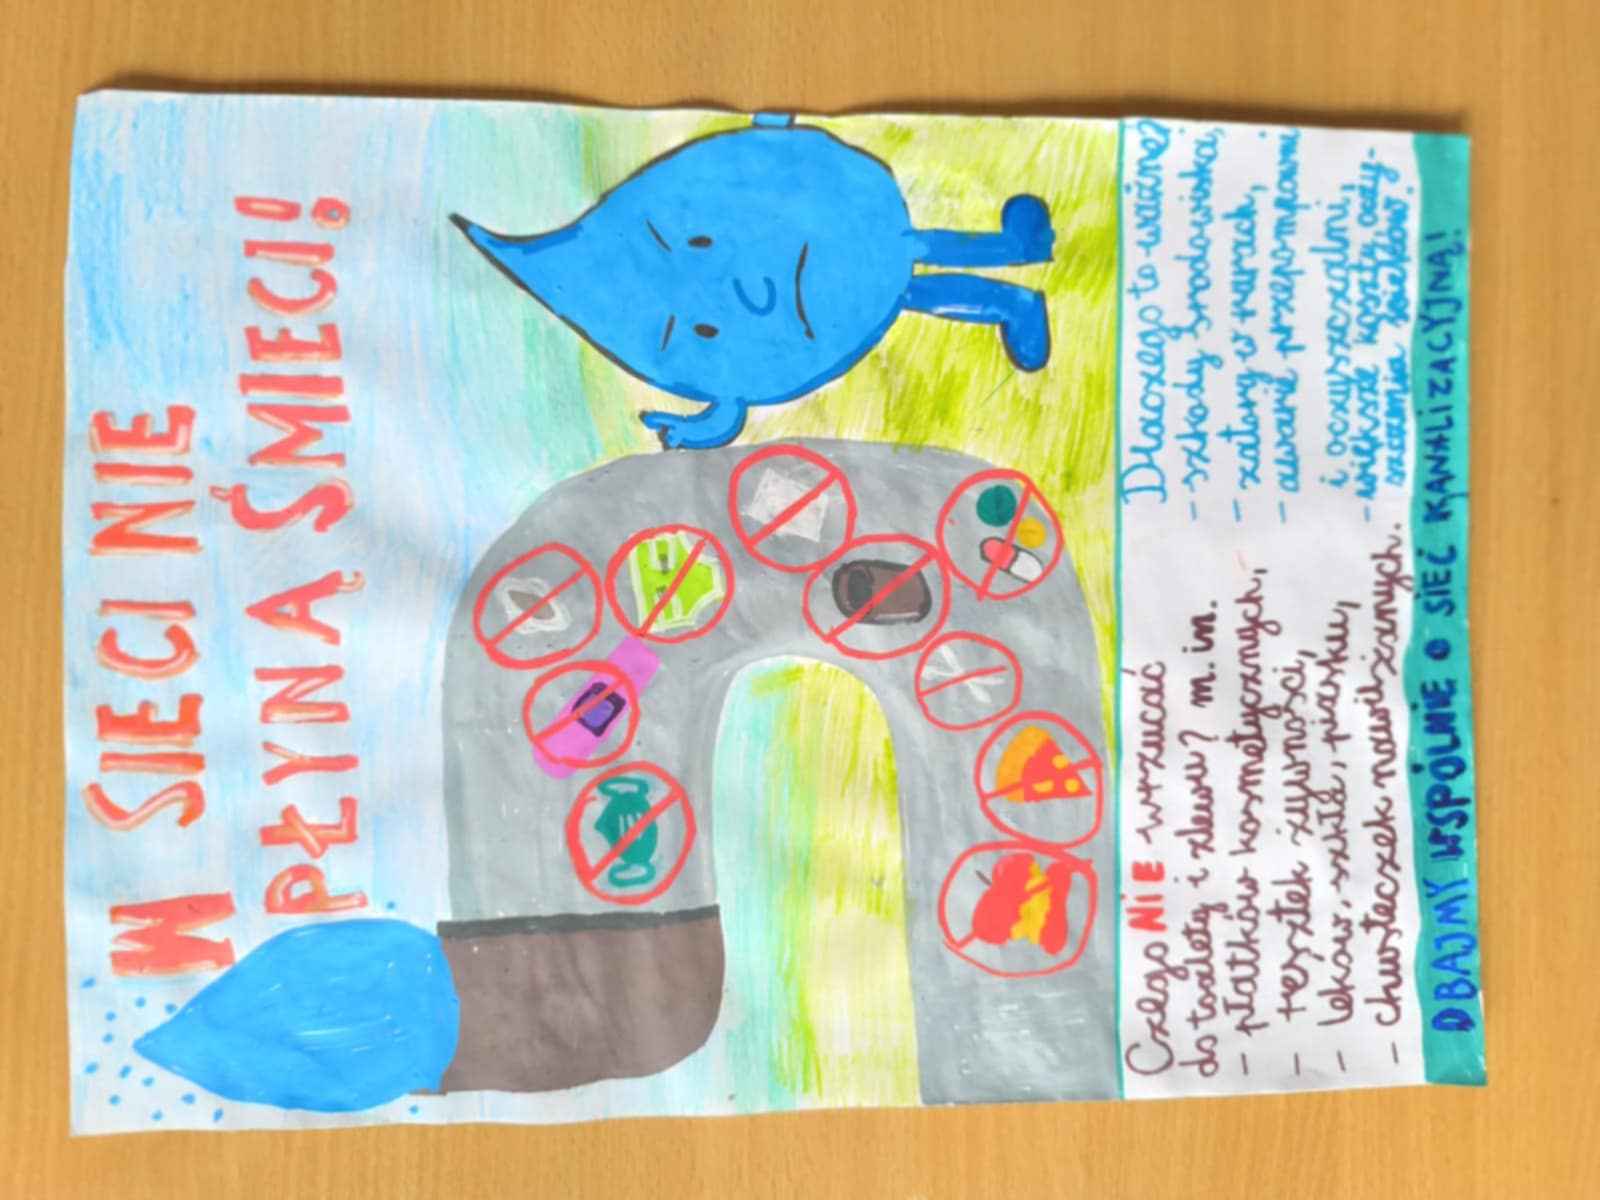 W SIECI NIE
PŁYNĄ ŚMIECI!
Czego NIE wrzucać
do toalety i zlewu? m.in.
- płatków kosmetycznych,
- resztek żywności,
- leków, szkła, piasku,
- chusteczek nawilżanych.
Dlaczego to ważne?
- szkody środowiska,
- zatory w rurach,
- awarie przepompowni
i oczyszczalni,
- większe koszty oczy-
szczania ścieków.
DBAJMY WSPÓLNIE O SIEĆ KANALIZACYJNĄ!